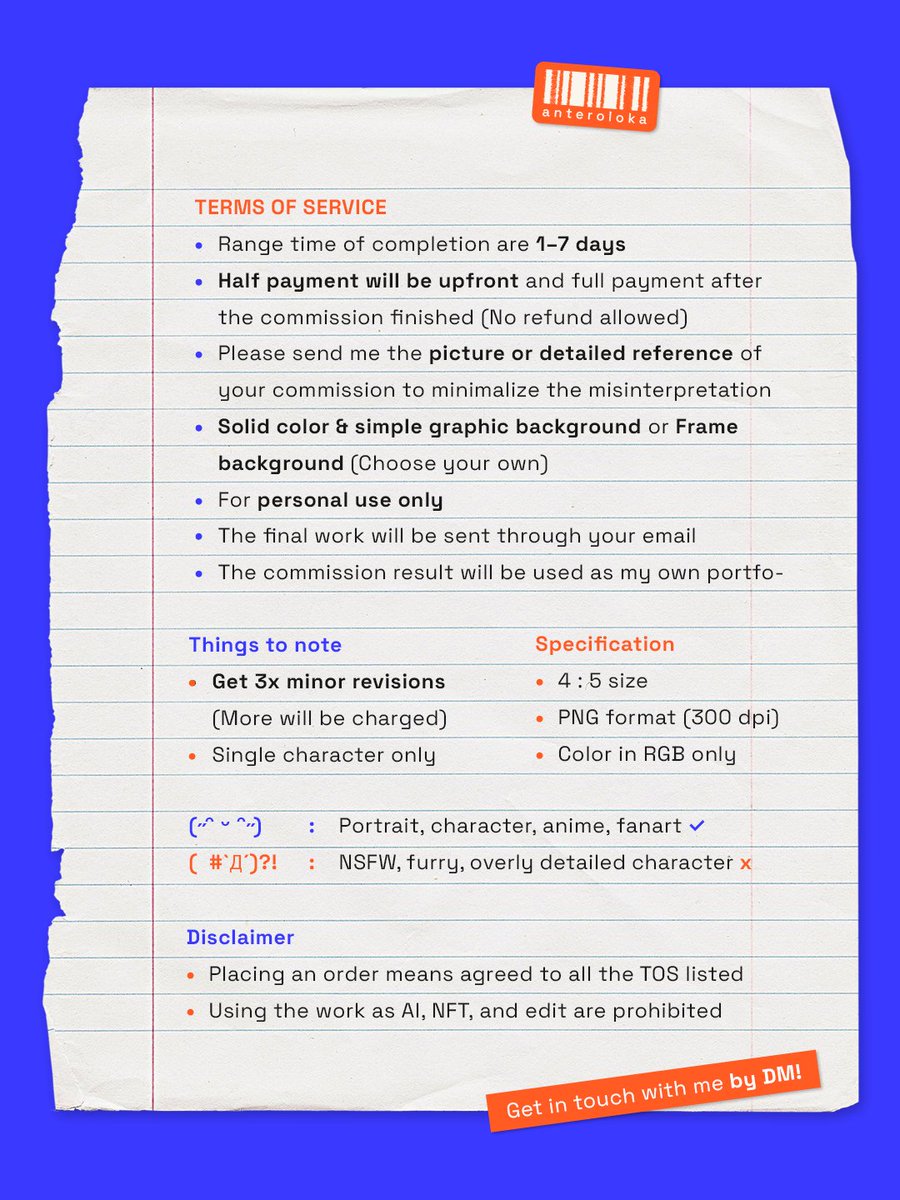 anteroloka
TERMS OF SERVICE
• Range time of completion are 1–7 days
• Half payment will be upfront and full payment after
the commission finished (No refund allowed)
• Please send me the picture or detailed reference of
your commission to minimalize the misinterpretation
• Solid color & simple graphic background or Frame
background (Choose your own)
• For personal use only
• The final work will be sent through your email
• The commission result will be used as my own portfo-
Things to note
• Get 3x minor revisions
(More will be charged)
• Single character only
Specification
• 4 : 5 size
• PNG format (300 dpi)
• Color in RGB only
(˶ᵔ ᵕ ᵔ˶) : Portrait, character, anime, fanart ✓
( #`Д´)?! : NSFW, furry, overly detailed character x
Disclaimer
• Placing an order means agreed to all the TOS listed
• Using the work as AI, NFT, and edit are prohibited
Get in touch with me by DM!